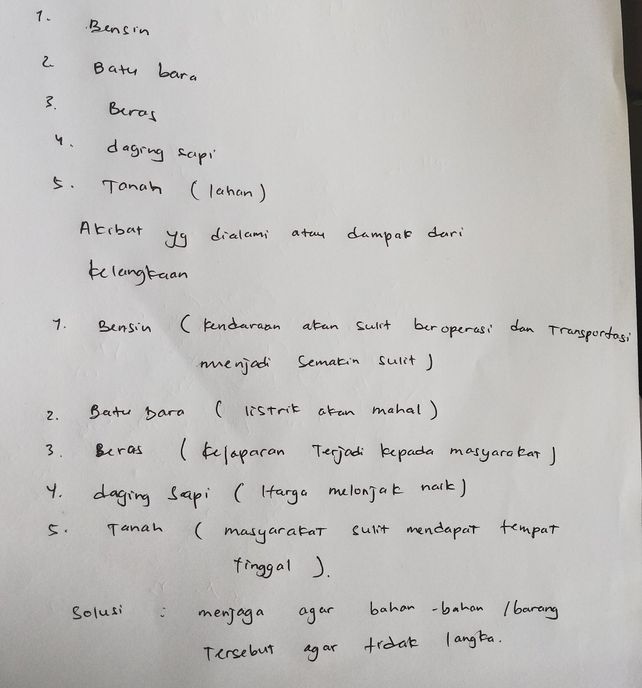 1. Bensin
2. Batu bara
3. Beras
4. daging sapi
5. Tanah (lahan)
Akibat yg dialami atau dampak dari
kelangkaan
1. Bensin (kendaraan akan sulit beroperasi dan Transportasi
menjadi semakin sulit)
2. Batu bara (listrik akan mahal)
3. Beras (kelaparan Terjadi kepada masyarakat)
4. daging sapi (Harga melonjak naik)
5. Tanah (masyarakat sulit mendapat tempat
tinggal).
Solusi : menjaga agar bahan-bahan /barang
Tersebut agar tidak langka.